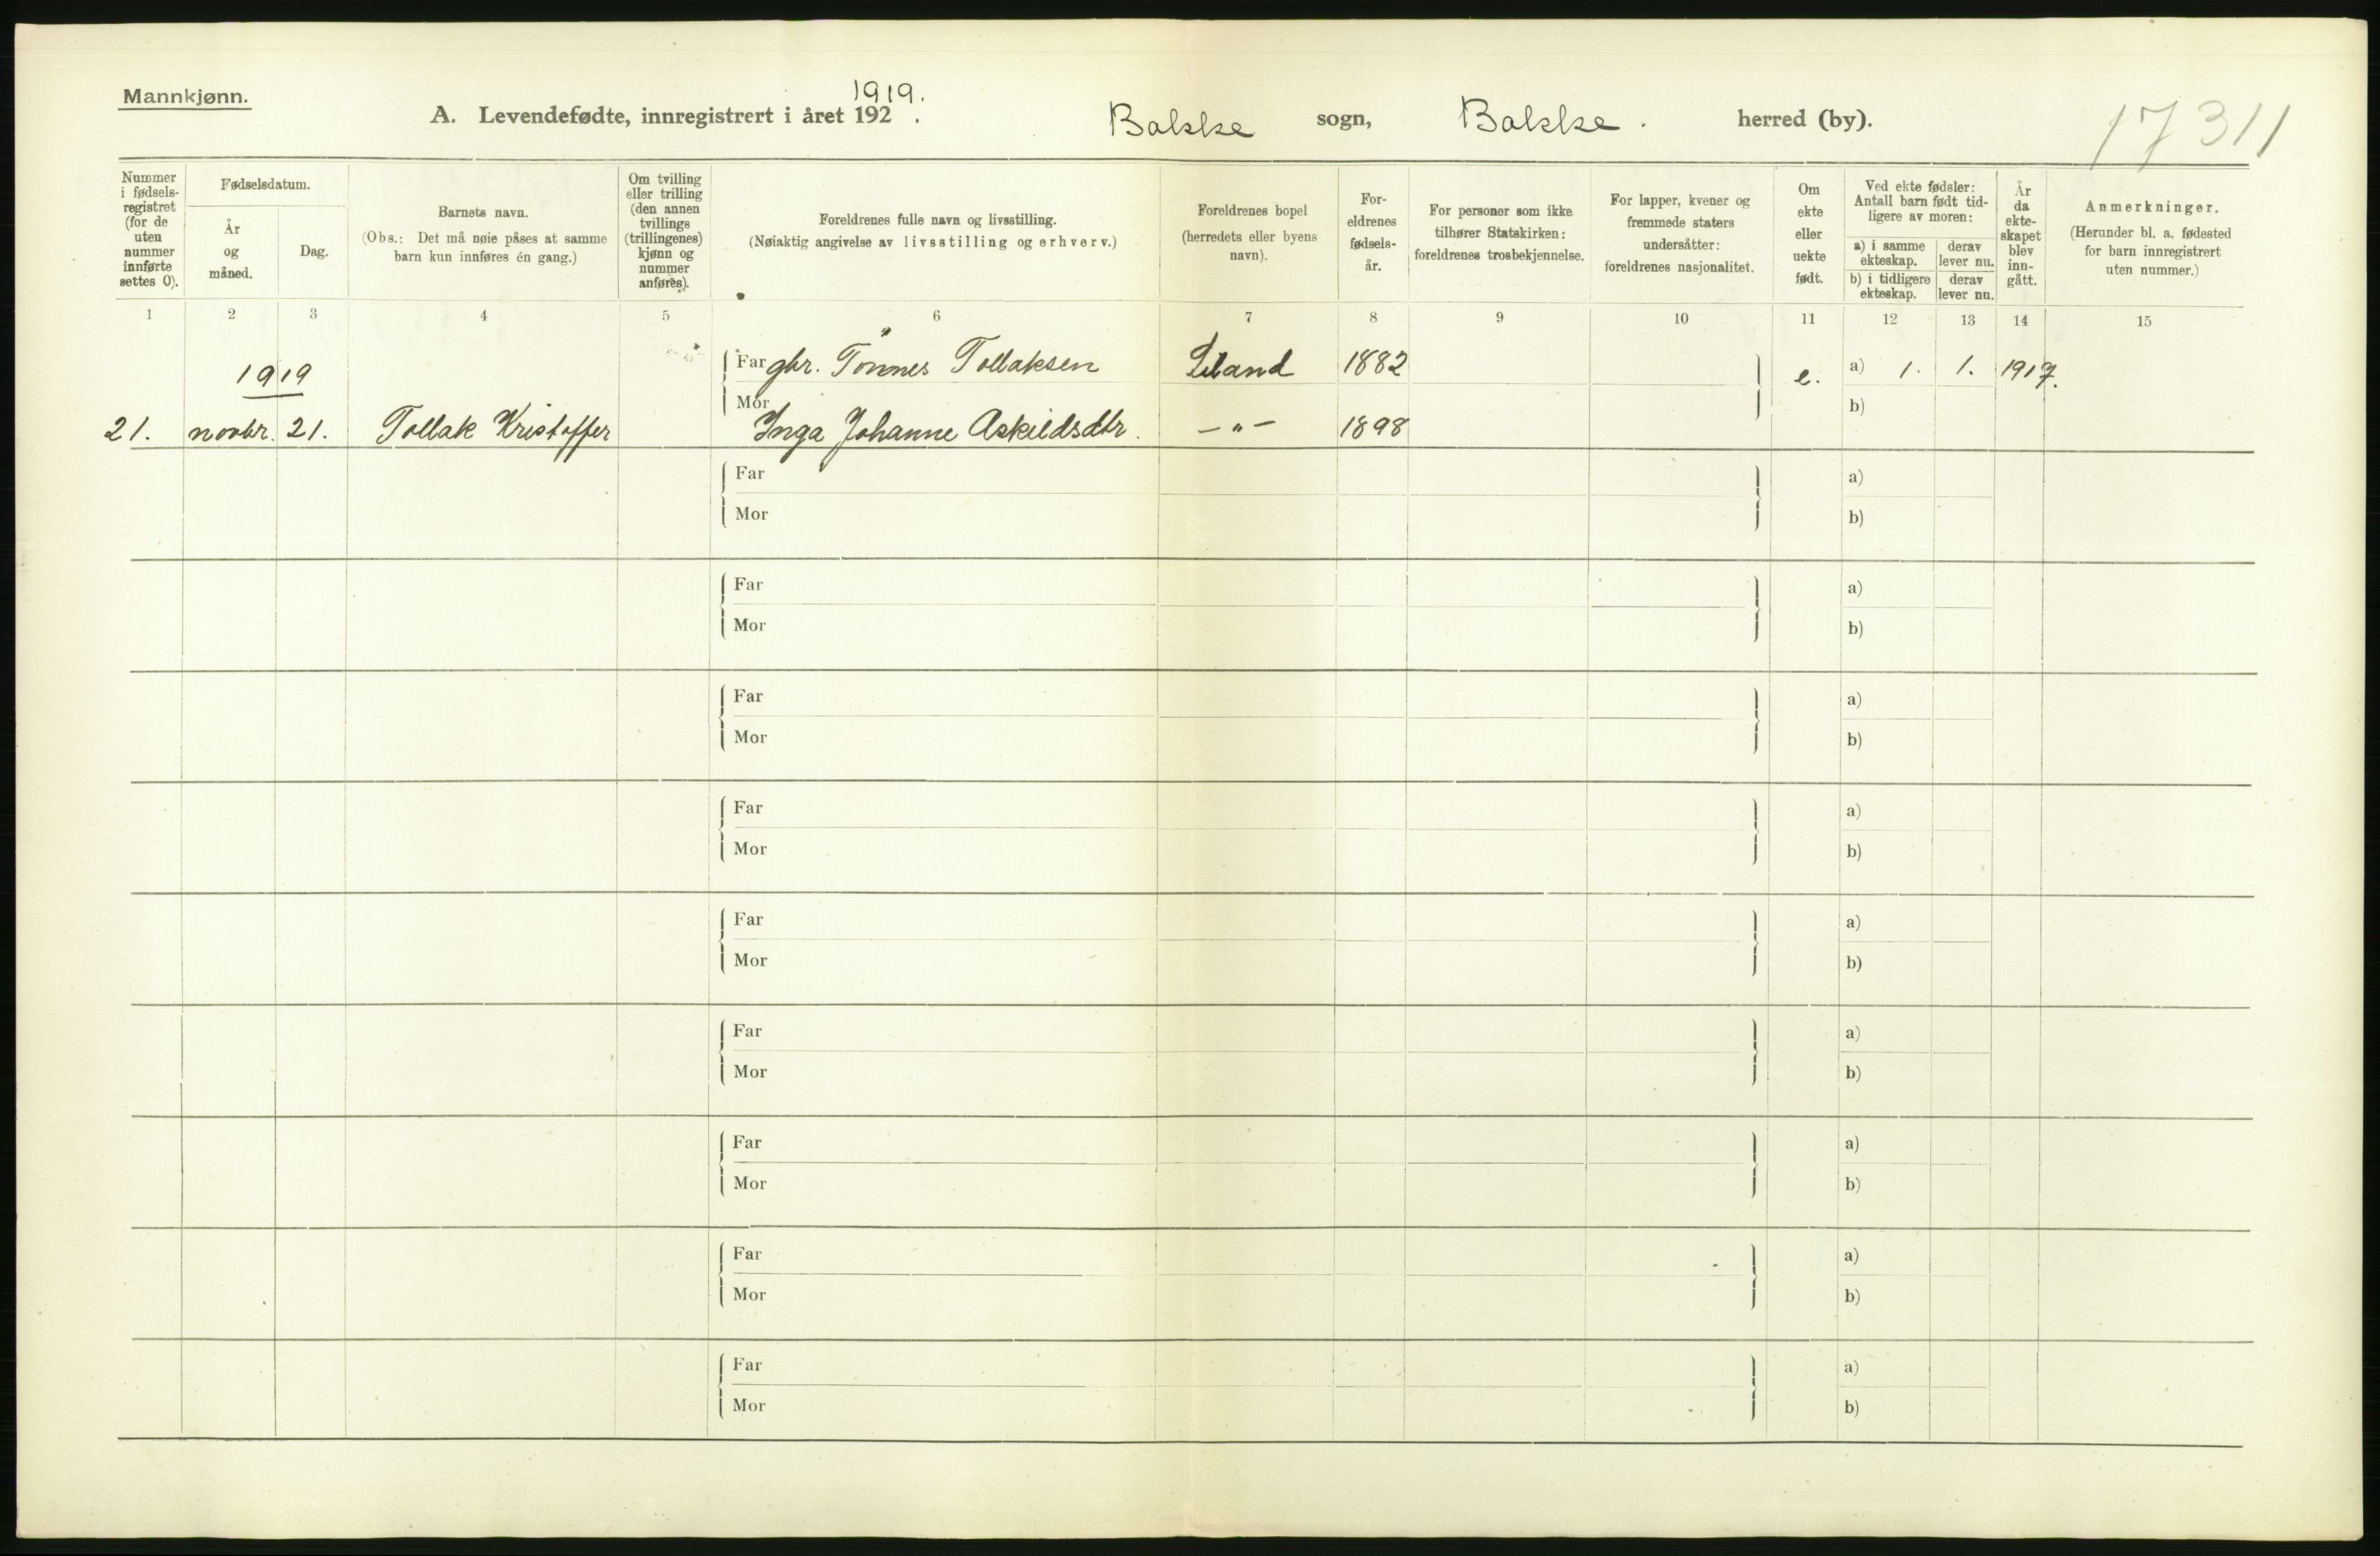 Mannkjønn.
1919.
A. Levendefødte, innregistrert i året 192 . Bakke sogn, Bakke. herred (by).
17311
Nummer i fødsels- registret (for de uten nummer innførte settes 0).
Fødselsdatum.
År og måned.
Dag.
Barnets navn.
(Obs.: Det må nøie påses at samme barn kun innføres én gang.)
Om tvilling eller trilling (den annen tvillings (trillingenes) kjønn og nummer anføres).
Foreldrenes fulle navn og livsstilling.
(Nøiaktig angivelse av livsstilling og erhverv.)
Foreldrenes bopel (herredets eller byens navn).
For- eldrenes fødsels- år.
For personer som ikke tilhører Statskirken: foreldrenes trosbekjennelse.
For lapper, kvener og fremmede staters undersåtter: foreldrenes nasjonalitet.
Om ekte eller uekte født.
Ved ekte fødsler: Antall barn født tid- ligere av moren:
a) i samme ekteskap.
derav lever nu.
b) i tidligere ekteskap.
derav lever nu.
År da ekte- skapet blev inn- gått.
Anmerkninger.
(Herunder bl. a. fødested for barn innregistrert uten nummer.)
1 2 3 4 5 6 7 8 9 10 11 12 13 14 15
1919 Far gbr. Tönnes Tollaksen 1882 e. a) 1. 1. 1917.
Mor b)
21. novbr. 21. Tollak Kristoffer Inga Johanne Askildsdtr. —"— 1898
Far a)
Mor b)
Far a)
Mor b)
Far a)
Mor b)
Far a)
Mor b)
Far a)
Mor b)
Far a)
Mor b)
Far a)
Mor b)
Far a)
Mor b)
Far a)
Mor b)